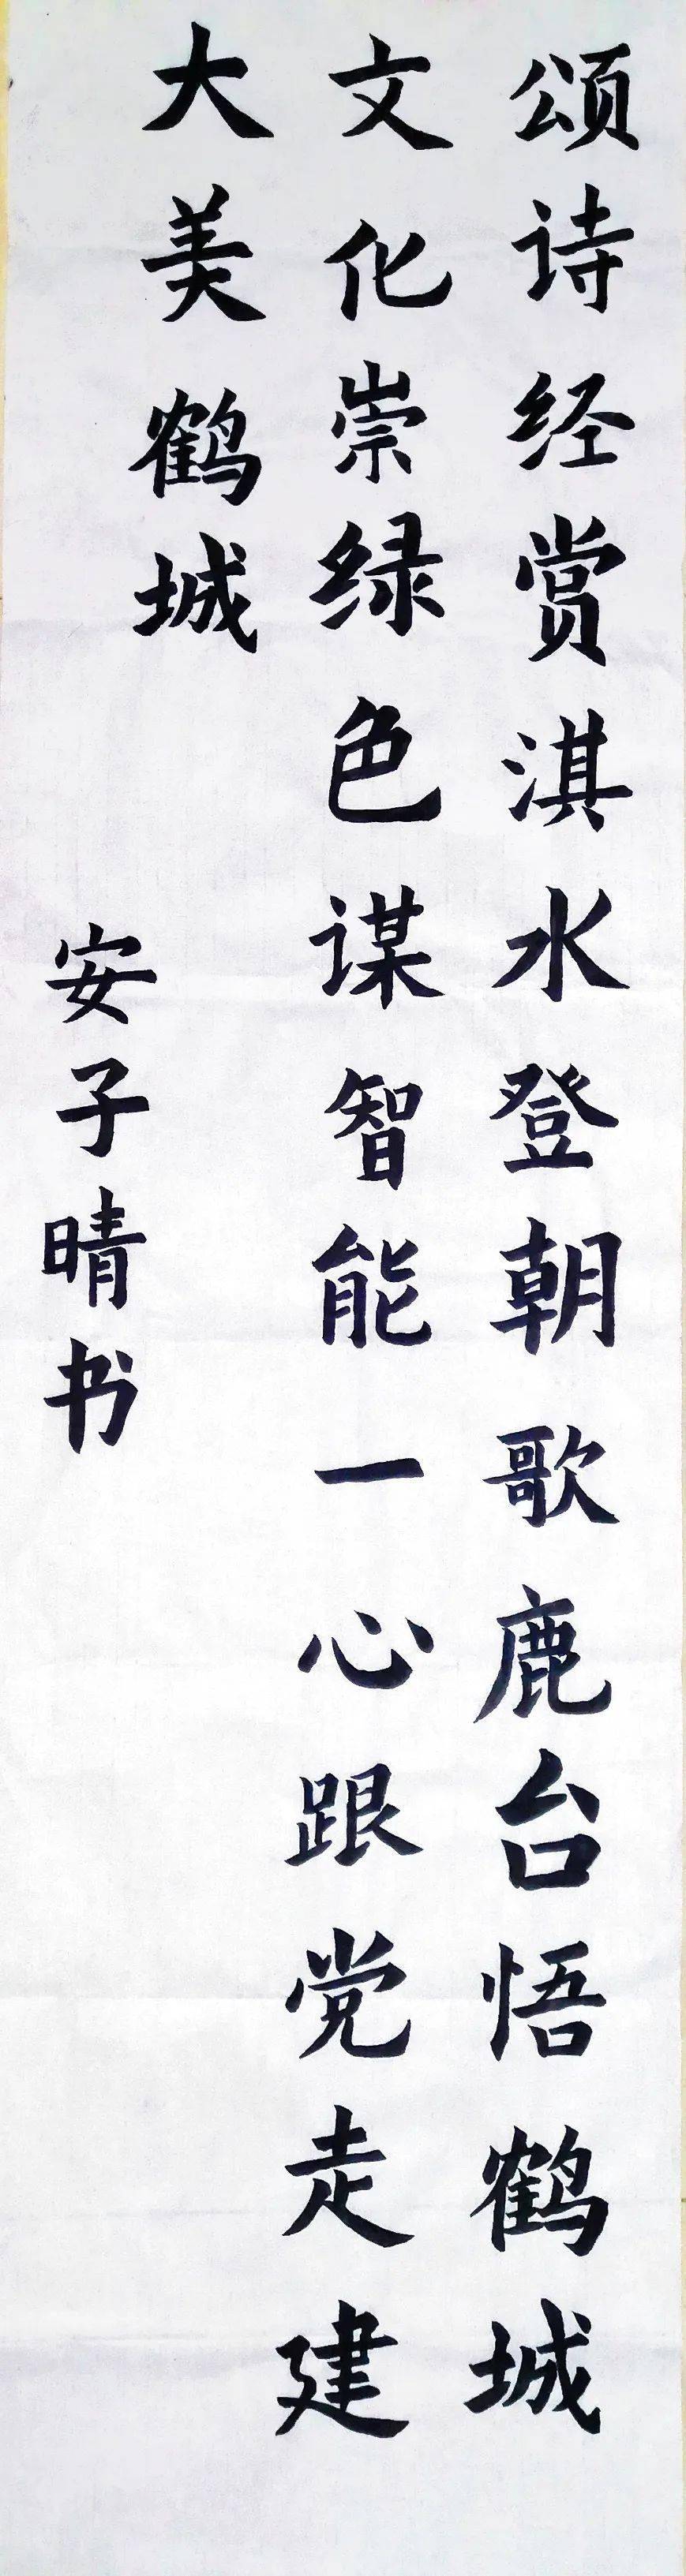 颂诗经赏淇水登朝歌鹿台悟鹤城
文化崇绿色谋智能一心跟党走建
大美鹤城
安子晴书